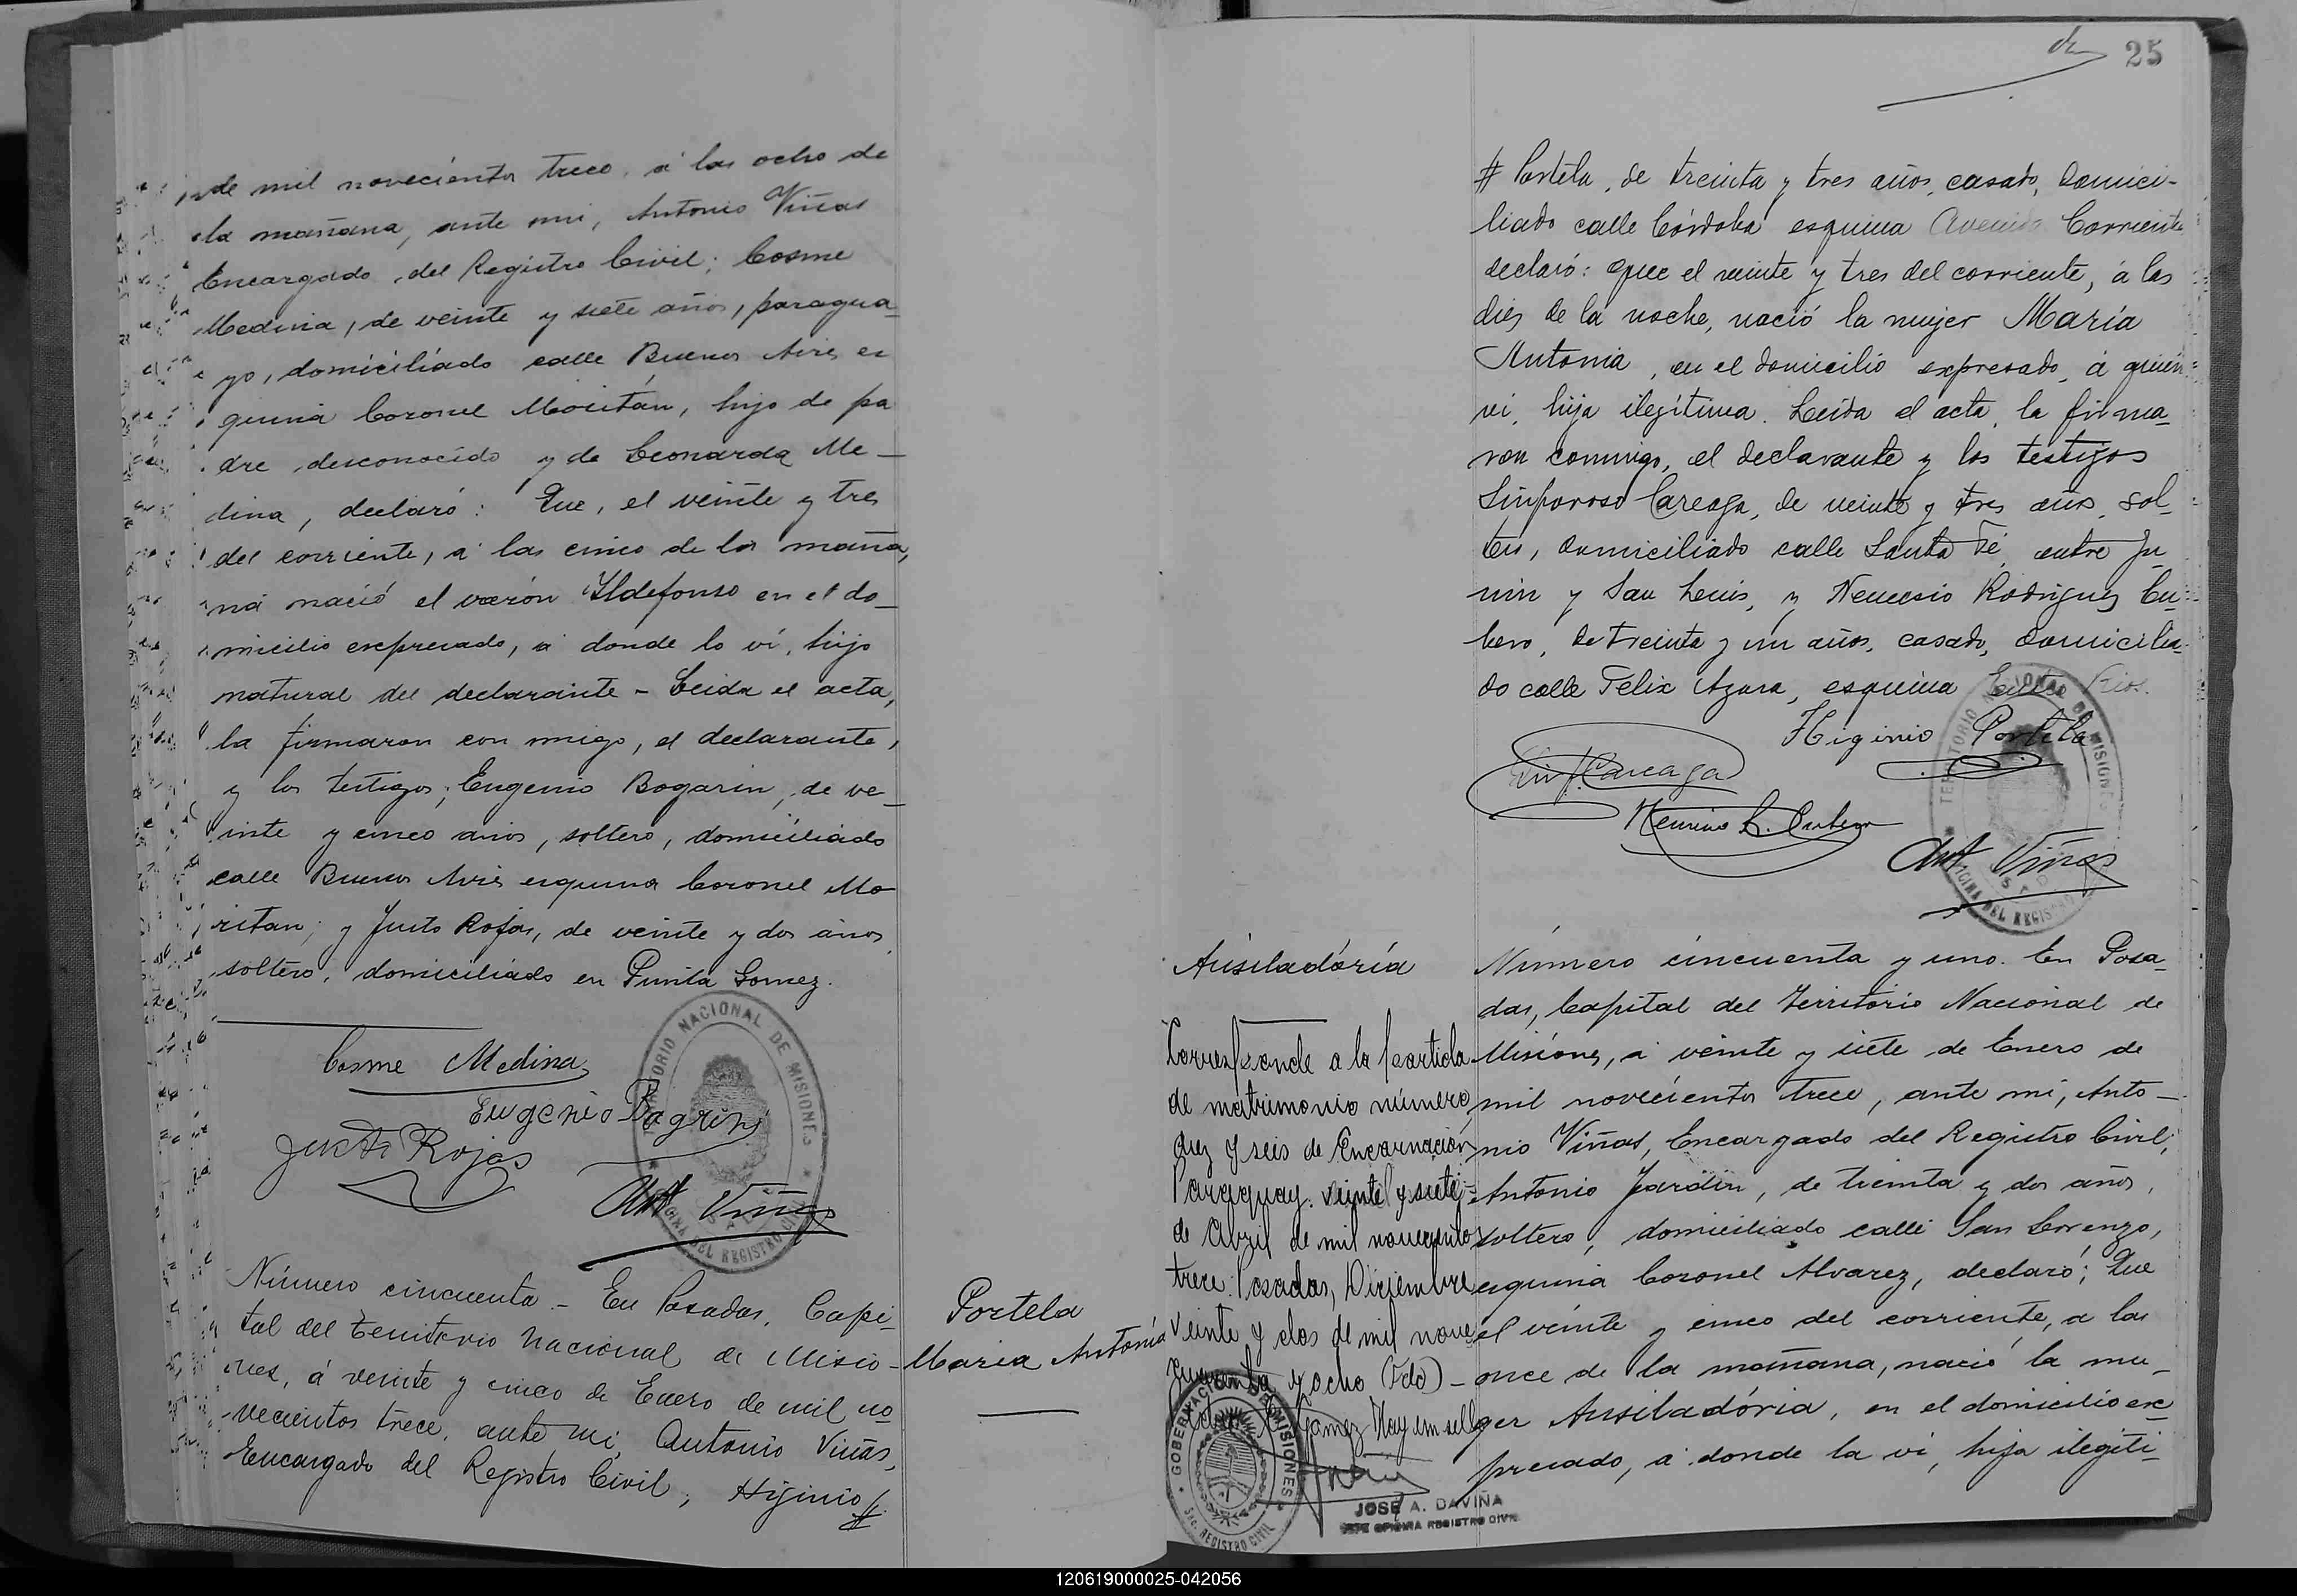 de mil novecientos trece, á las ocho de
la mañana, ante mi, Antonio Viñas
Encargado del Registro Civil; Cosme
Medina, de veinte y siete años, paragua_
yo, domiciliado calle Buenos Aires es
quina Coronel Moritán, hijo de pa
dre desconocido y de Leonarda Me_
dina, declaró: Que, el veinte y tres
del corriente, a las cinco de la maña,
na nació el varón Ildefonso en el do_
micilio expresado, a donde lo ví, hijo
natural del declarante - Leida el acta,
la firmaron con migo, el declarante,
y los testigos; Eugenio Bogarin, de ve_
inte y cinco años, soltero, domiciliado
calle Buenos Aires esquina Coronel Mo
ritan; y Justo Rojas, de veinte y dos años
soltero, domiciliado en Punta Gomez.
Cosme Medina
Eugenio Bogrin
Justo Rojas
Ant Viñas
TERRITORIO NACIONAL DE MISIONES
OFICINA DEL REGISTRO CIVIL
Número cincuenta - En Posadas, Capi_
tal del Territorio Nacional de Misio_
nes, á veinte y cinco de Enero de mil no
vecientos trece, ante mi, Antonio Viñas,
Encargado del Registro Civil; Higinio #
Portela
Maria Antonia
25
# Portela, de treinta y tres años, casado, domici-
liado calle Córdoba esquina Avenida Corrientes
declaró: Que el veinte y tres del corriente, á las
diez de la noche, nació la mujer María
Antonia, en el domicilio expresado, á quien
vi, hija ilegítima. Leida el acta, la firma_
ron conmigo, el declarante y los testigos
Sinforoso Careaga, de veinte y tres años, sol_
tero, domiciliado calle Santa Fé, entre Ju_
nin y San Luis, y Nemesio Rodriguez Cu_
bero, de treinta y un años, casado, domicilia_
do calle Felix Azara, esquina Entre Rios.
Higinio Portela
Careaga
Nemesio R. Cubero
Ant Viñas
TERRITORIO NACIONAL DE MISIONES
OFICINA DEL REGISTRO
Ausiladória
Corresponde a la partida
de matrimonio número
diez y seis de Encarnación
Paraguay. veinte y siete
de Abril de mil novecientos
trece. Posadas, Diciembre
veinte y dos de mil nove
cuarenta y ocho (Fdo) -
Gamez Hay un sello
GOBERNACION DE MISIONES
Sec. REGISTRO CIVIL
JOSE A. DAVIÑA
JEFE OFICINA REGISTRO CIVIL
Número cincuenta y uno. En Posa_
das, Capital del Territorio Nacional de
Misiones, a veinte y siete de Enero de
mil novecientos trece, ante mi, Anto_
nio Viñas, Encargado del Registro Civil;
Antonio Jardin, de treinta y dos años,
soltero, domiciliado calle San Lorenzo,
esquina Coronel Alvarez, declaró; Que
el veinte y cinco del corriente, a las
once de la mañana, nació la mu_
ger Ausiladória, en el domicilio ex_
presado, a donde la ví, hija ilegiti_
120619000025-042056